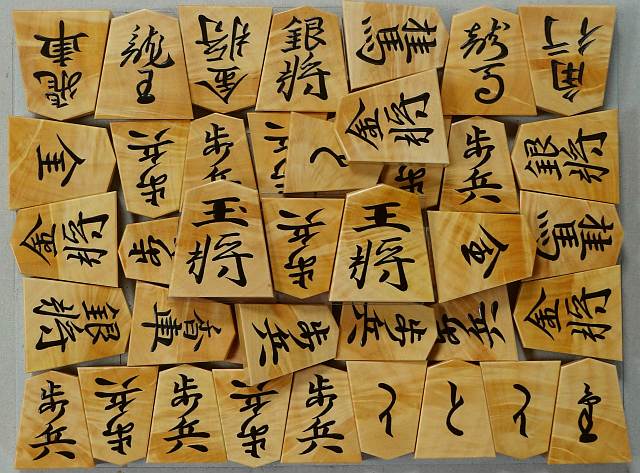 飛車
龍王
金将
銀将
桂馬
龍馬
角行
全
歩兵
歩兵
と
金将
歩兵
銀将
金将
歩
玉将
歩兵
王将
全
桂馬
銀将
香車
歩兵
歩兵
歩兵
金将
歩兵
歩兵
歩兵
歩兵
歩兵
と
と
と